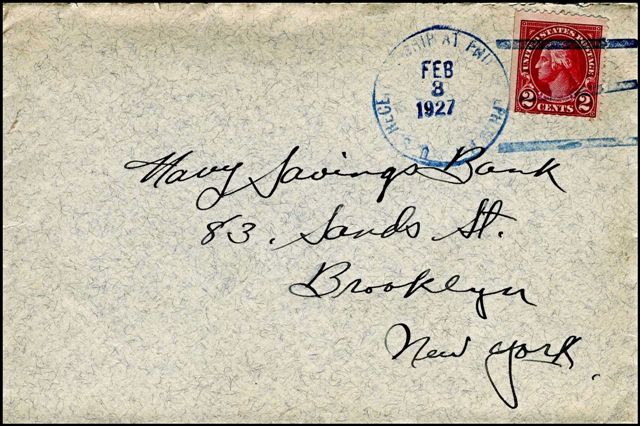 FEB
8
1927
UNITED STATES POSTAGE
2 CENTS 2
Navy Savings Bank
83. Sands St.
Brooklyn
New York.